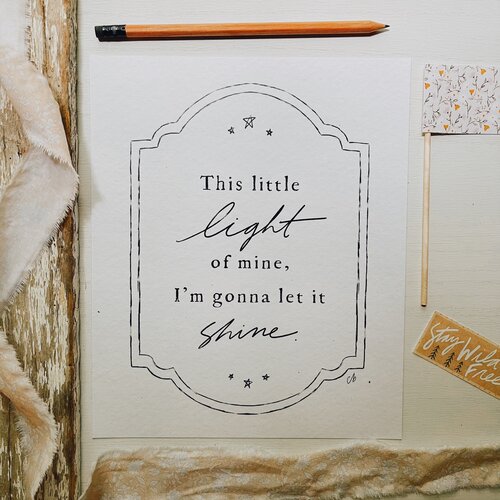 This little
light
of mine,
I'm gonna let it
shine.
Stay Wild